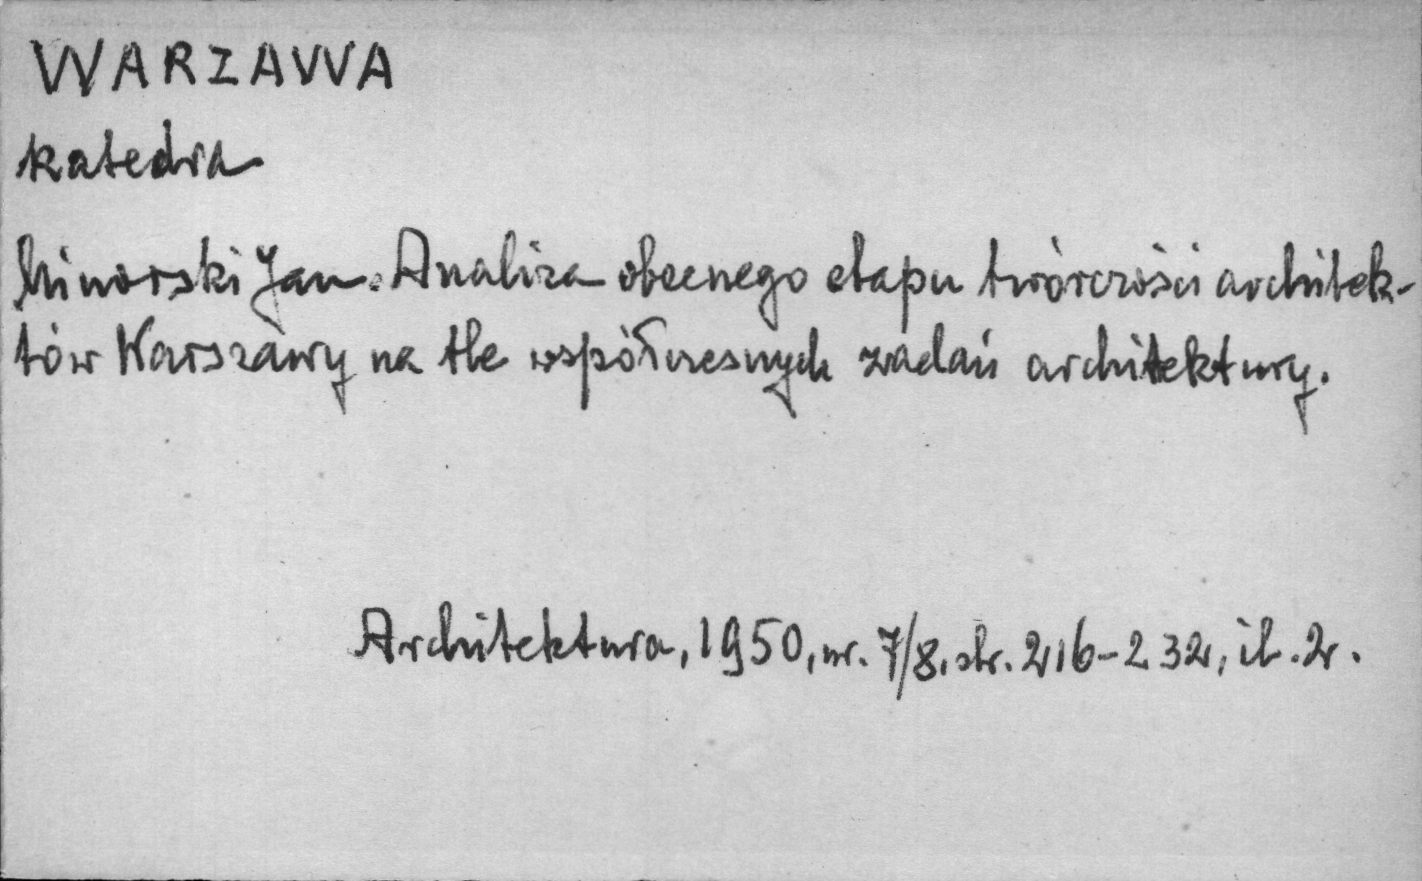 WARZAWA
katedra
Minorski Jan. Analiza obecnego etapu twórczości architek-
tów Warszawy na tle współczesnych zadań architektury.
Architektura, 1950, nr. 7/8, str. 216-232, il. 2.